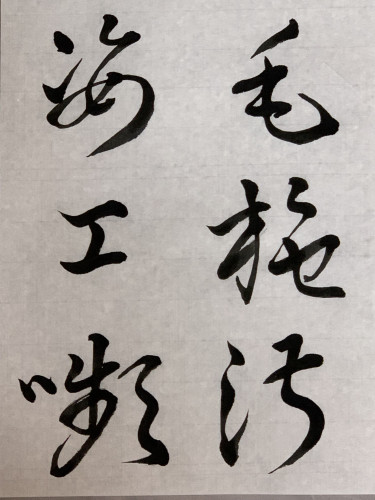 毛施淑
姿工嚬